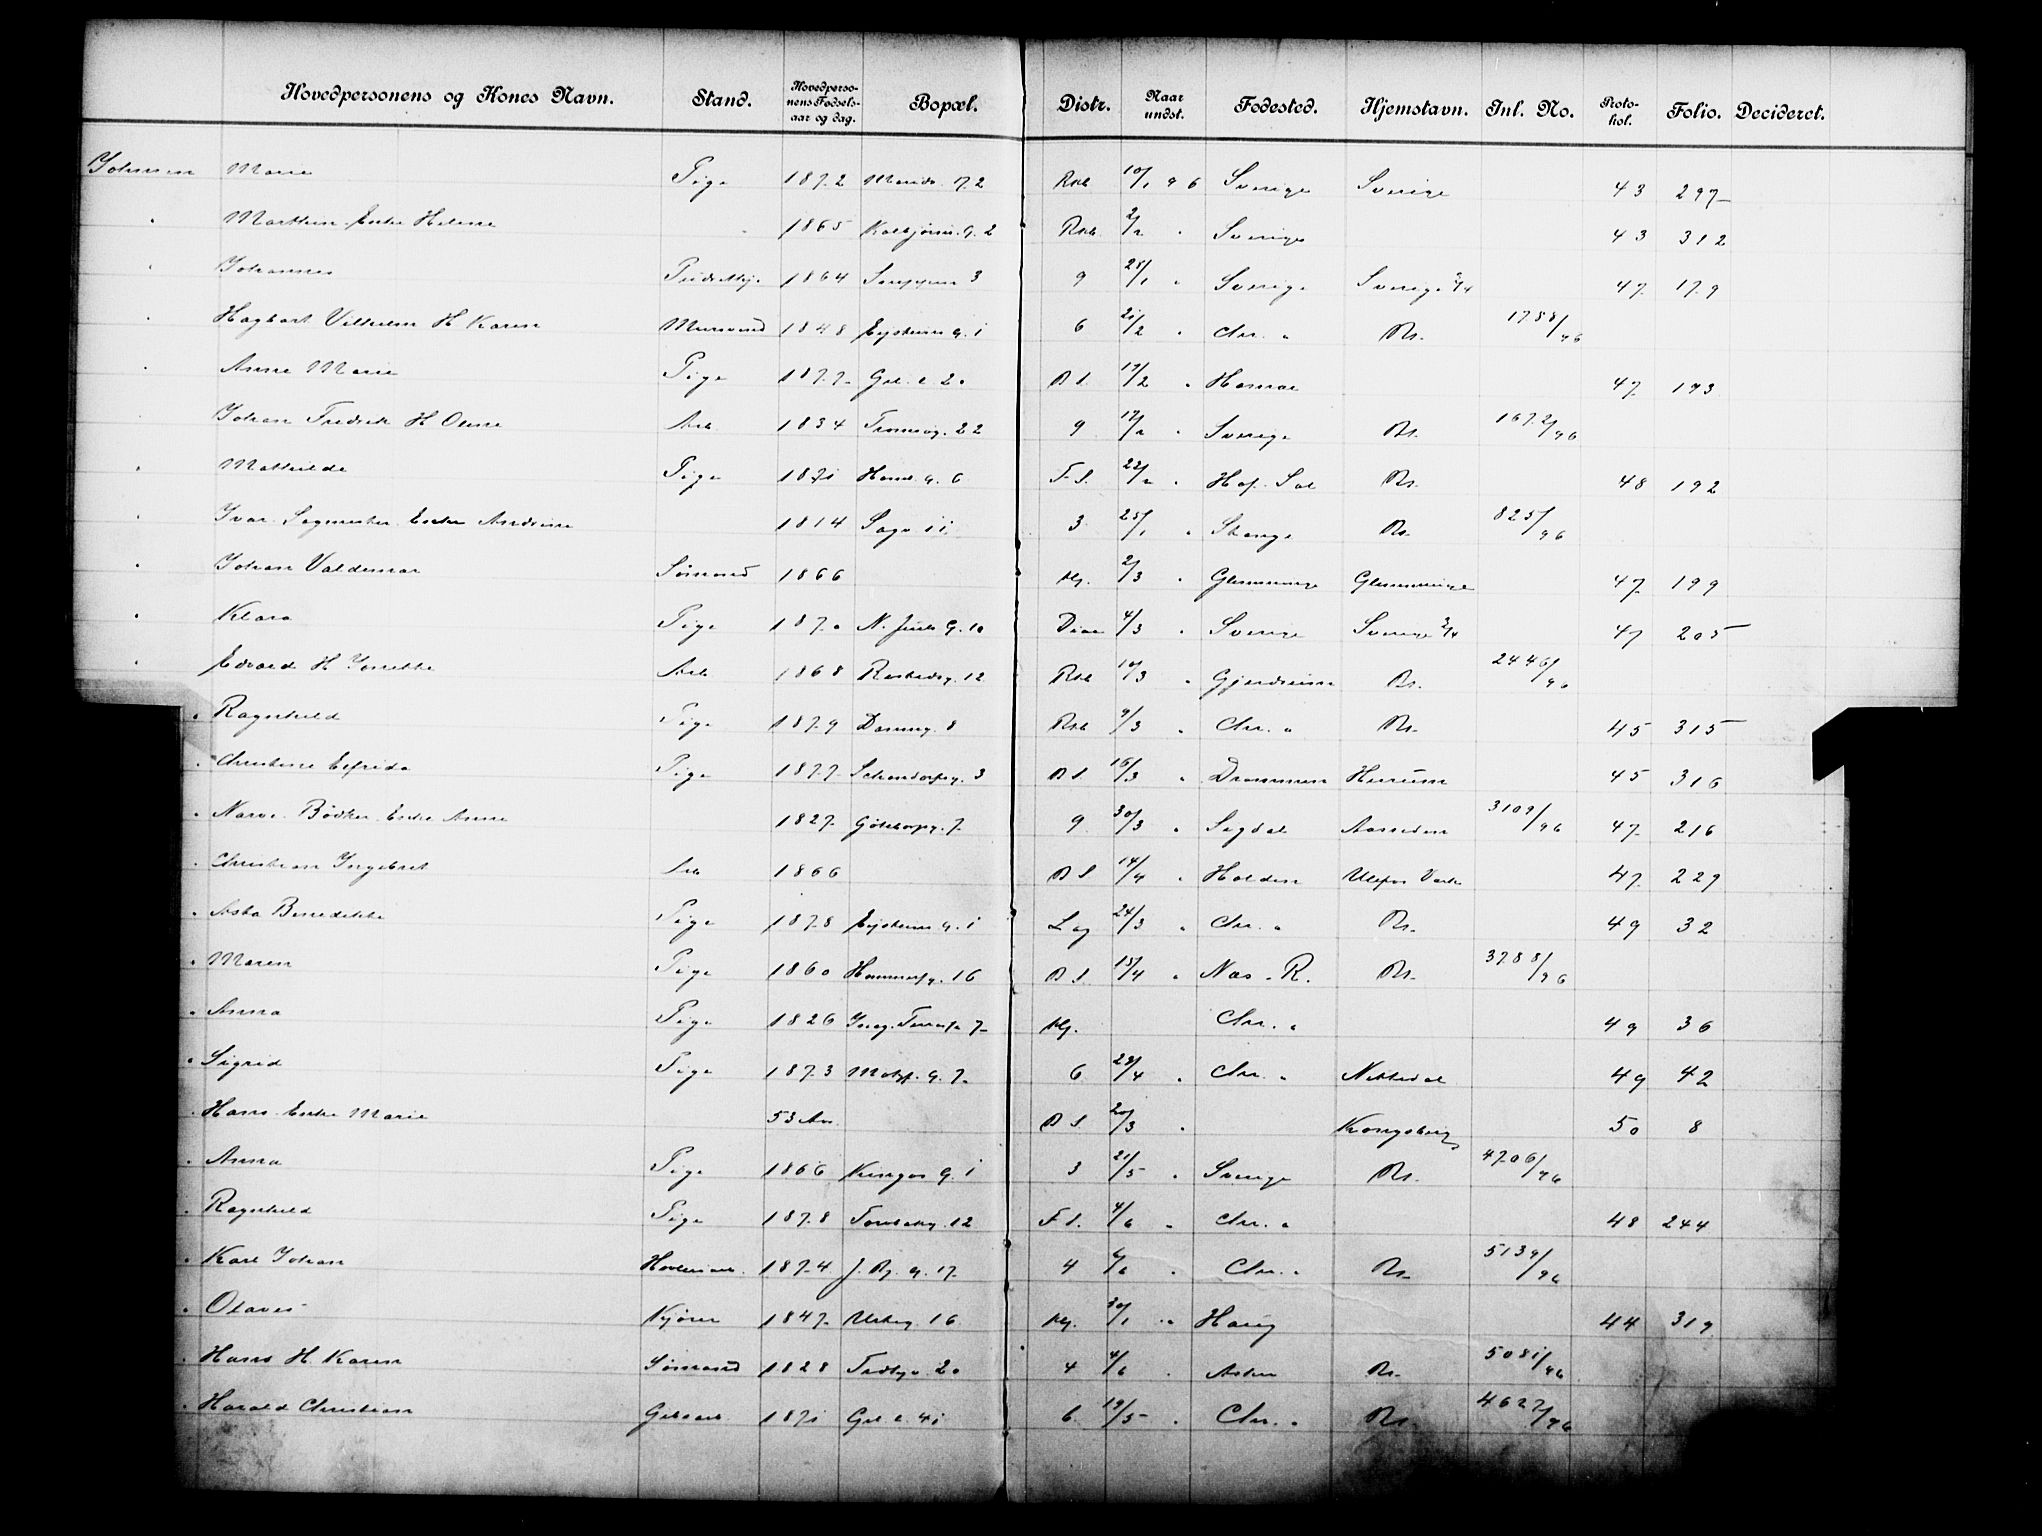 Hovedpersonens og Kones Navn. Stand. Hovedperso-nens Fødsels-aar og dag. Bopæl. Distr. Naar undst. Fødested. Hjemstavn. Inl. No. Proto-kol. Folio. Decideret.
Johansen Marie Pige 1872 Marids. 72 Rkb 10/1 96 Sverige Sverige 43 297
" Marthin Enke Helene " 1865 Kolbjørns. G. 2 Rkb 2/2 " Sverige 43 312
" Johannes 1864 3 9 28/1 " Sverige Sverige 3/4 47 179
" Hagbart Vilhelm H Karen Murmand 1848 Eystens G. 1 6 21/2 " Chr. " Br. 1788/96
" Anne Marie Pige 1877 Grl. l 20 B S. 19/2 " Hamar 47 193
" Johan Fredrik H Oline Arb. 1834 Tromsøg. 22 9 17/2 " Sverige Br. 1672/96
" Mathilde Pige 1871 Hamb. G. 6 F. S. 22/2 " Hof. Sol Br. 48 192
" Ivar Sagmester Enke Andrine 1814 Sagv. 11 3 25/1 " Stange Br. 825/96
" Johan Valdemar Sømand 1866 Hj. 2/3 " Glemminge Glemminge 47 199
" Klara Pige 1870 N. G. 10 4/3 " Sverige Sverige 3/4 47 205
" Edvard H Josefine Arb 1868 Rostedsg. 12 Rkb 10/3 " Gjerdrum Br. 2446/96
" Ragnhild Pige 1879 Damug. 8 Rkb 9/3 " Chr. " Br. 45 315
" Christine Elfrida Pige 1877 Schandorfsg. 3 B S. 16/3 " Drammen Hurum 45 316
" Narve Bødker Enke Anne 1827 Gøteborgg. 7 9 30/3 " Sigdal Aasseden 3109/96 47 216
" Christian Ingebret Arb 1866 B S 14/4 " Holden Ulefos Værk 47 229
" Asta Benedikte Pige 1878 Eystens G. 1 Lag 24/3 " Chr. " Br. 49 32
" Maren Pige 1860 Hammerfg. 16 B S. 15/4 " Næs - R. Br. 3788/96
" Anna Pige 1826 Ing. Terrasse 7 Hj. Chr. " 49 36
" Sigrid Pige 1873 Motzf. G. 7 6 28/4 " Chr. " Nittedal 49 42
" Hans Enke Marie 53 Aar B S. 20/3 " Kongsberg 50 8
" Anna Pige 1866 Kingos G. 1 3 21/5 " Sverige Br. 4706/96
" Ragnhild Pige 1878 Torvbakg. 12 F S. 4/6 " Chr. " 48 244
" Karl Johan Høvleriarb. 1874 J. Bj. G. 17 4 6/6 " Chr. " Br. 5139/96
" Olaves Kjører 1847 Urteg. 16 Hj. 30/1 " Haug 44 319
" Hans H. Karen Sømand 1828 Tvetbgv. 20 4 4/6 " Asker Br. 5081/96
" Harald Christian Gelbarb. 1871 Grl. l 41 6 19/5 " Chr. " Br. 4627/96